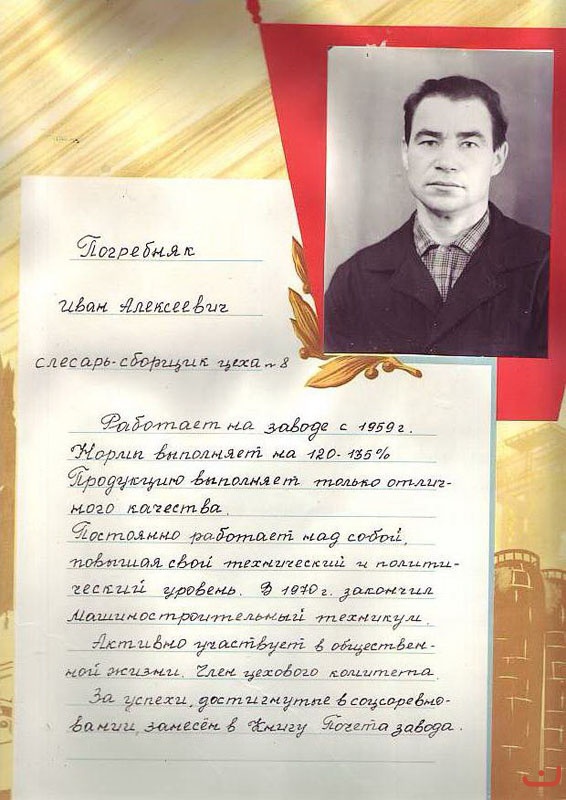 Погребняк
Иван Алексеевич
слесарь-сборщик цеха №8
Работает на заводе с 1959г.
Нормы выполняет на 120-135%
Продукцию выполняет только отлич-
ного качества.
Постоянно работает над собой,
повышая свой технический и полити-
ческий уровень. В 1970г. закончил
машиностроительный техникум.
Активно участвует в обществен-
ной жизни. Член цехового комитета.
За успехи, достигнутые в соцсоревно-
вании, занесён в Книгу Почета завода.